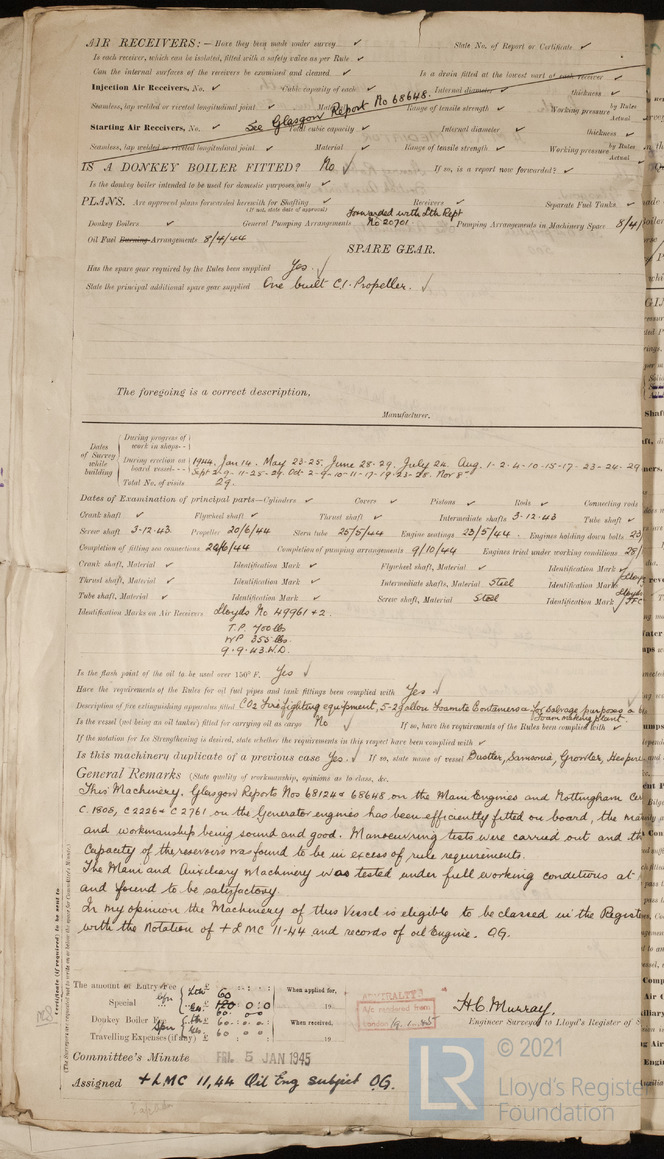 AIR RECEIVERS:— Have they been made under survey ✓ State No. of Report or Certificate ✓
Is each receiver, which can be isolated, fitted with a safety valve as per Rule ✓
Can the internal surfaces of the receivers be examined and cleaned ✓ Is a drain fitted at the lowest part of each receiver ✓
Injection Air Receivers, No. ✓ Cubic capacity of each ✓ Internal diameter ✓ thickness ✓
Seamless, lap welded or riveted longitudinal joint ✓ Material Range of tensile strength ✓ Working pressure by Rules Actual
See Glasgow Report No 68648.
Starting Air Receivers, No. ✓ Total cubic capacity ✓ Internal diameter ✓ thickness ✓
Seamless, lap welded or riveted longitudinal joint ✓ Material ✓ Range of tensile strength ✓ Working pressure by Rules Actual ✓
IS A DONKEY BOILER FITTED? No ✓ If so, is a report now forwarded? ✓
Is the donkey boiler intended to be used for domestic purposes only ✓
PLANS. Are approved plans forwarded herewith for Shafting ✓ Receivers ✓ Separate Fuel Tanks ✓
(If not, state date of approval)
Forwarded with Lth Rept
Donkey Boilers ✓ General Pumping Arrangements No 20701 Pumping Arrangements in Machinery Space 8/4/
Oil Fuel Burning Arrangements 8/4/44
SPARE GEAR.
Has the spare gear required by the Rules been supplied Yes ✓
State the principal additional spare gear supplied One built C.I. Propeller. ✓
The foregoing is a correct description,
Manufacturer.
Dates of Survey while building
During progress of work in shops - -
During erection on board vessel - - 1944. Jan 14. May 23-25. June 28-29. July 24. Aug. 1-2-4-10-15-17-23-24-29
Sept 2-9-11-25-29. Oct 2-9-10-11-17-19-23-28. Nov 8
Total No. of visits 29.
Dates of Examination of principal parts—Cylinders ✓ Covers ✓ Pistons ✓ Rods ✓ Connecting rods
Crank shaft ✓ Flywheel shaft ✓ Thrust shaft ✓ Intermediate shafts 3-12-43 Tube shaft ✓
Screw shaft 3-12-43 Propeller 20/6/44 Stern tube 25/5/44 Engine seatings 23/5/44 Engines holding down bolts 23/
Completion of fitting sea connections 20/6/44 Completion of pumping arrangements 9/10/44 Engines tried under working conditions 28/
Crank shaft, Material ✓ Identification Mark ✓ Flywheel shaft, Material ✓ Identification Mark ✓
Thrust shaft, Material ✓ Identification Mark ✓ Intermediate shafts, Material Steel Identification Marks Lloyds
Tube shaft, Material ✓ Identification Mark ✓ Screw shaft, Material Steel Identification Mark Lloyds
Identification Marks on Air Receivers Lloyds No 49961 + 2.
T.P. 700 lbs
W.P. 355 lbs.
9.9.43 W.D.
Is the flash point of the oil to be used over 150° F. Yes ✓
Have the requirements of the Rules for oil fuel pipes and tank fittings been complied with Yes ✓
Description of fire extinguishing apparatus fitted CO2 Fire fighting equipment, 5-2 gallon Foamite Containers & for salvage purposes a
foam making plant.
Is the vessel (not being an oil tanker) fitted for carrying oil as cargo No ✓ If so, have the requirements of the Rules been complied with ✓
If the notation for Ice Strengthening is desired, state whether the requirements in this respect have been complied with ✓
Is this machinery duplicate of a previous case Yes. ✓ If so, state name of vessel Bustler, Samsonia, Growler, Hesperia
General Remarks (State quality of workmanship, opinions as to class, &c.
This Machinery. Glasgow Reports Nos 68124 & 68648 on the Main Engines and Nottingham Cer
C.1805, C2226 & C2761 on the Generator engines has been efficiently fitted on board, the ma
and workmanship being sound and good. Manoeuvring tests were carried out and the
Capacity of the reservoirs was found to be in excess of rule requirements.
The Main and Auxiliary Machinery was tested under full working conditions at
and found to be satisfactory.
In my opinion the Machinery of this Vessel is eligible to be classed in the Register
with the Notation of + LMC 11-44 and records of oil Engine. O.G.
Certificate (if required) to be sent to
(The Surveyors are requested not to write on or below the space for Committee's Minute.)
The amount of Entry Fee £ 60 When applied for,
Special £ 120 : 0 : 0 19
Donkey Boiler Fee £ 60 When received,
Travelling Expenses (if any) £ 60 19
ADMIRALTY
A/c rendered from
London
H.C. Murray.
Engineer Surveyor to Lloyd's Register of S
Committee's Minute FRI. 5 JAN 1945
Assigned + LMC 11,44 Oil Eng subject O.G.
© 2021
LR
Lloyd's Register
Foundation